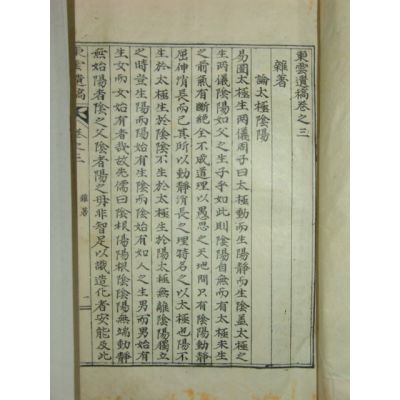 東雲遺稿卷之三
雜著
論太極陰陽
易圖太極生兩儀周子曰太極動而生陽靜而生陰蓋太極之
生兩儀陰陽如父之生子乎如此則陰陽自無而有太極未生
之前氣有斷絕全不成道理以愚思之天地間只有陰陽動靜
屈伸消長而已其所以動靜消長之理特名之以太極也陽不
生於太極生於陰陰不生於太極生於陽太極無離陰陽獨立
之時豈生陽而陽始有生陰而陰始有如人之生男而男始有
生女而女始有者哉故先儒曰陰根陽陽根陰陰陽無端動靜
無始陽者陰之父陰者陽之母非智足以識造化者安能及此
東雲遺稿
卷之三
雜著
一